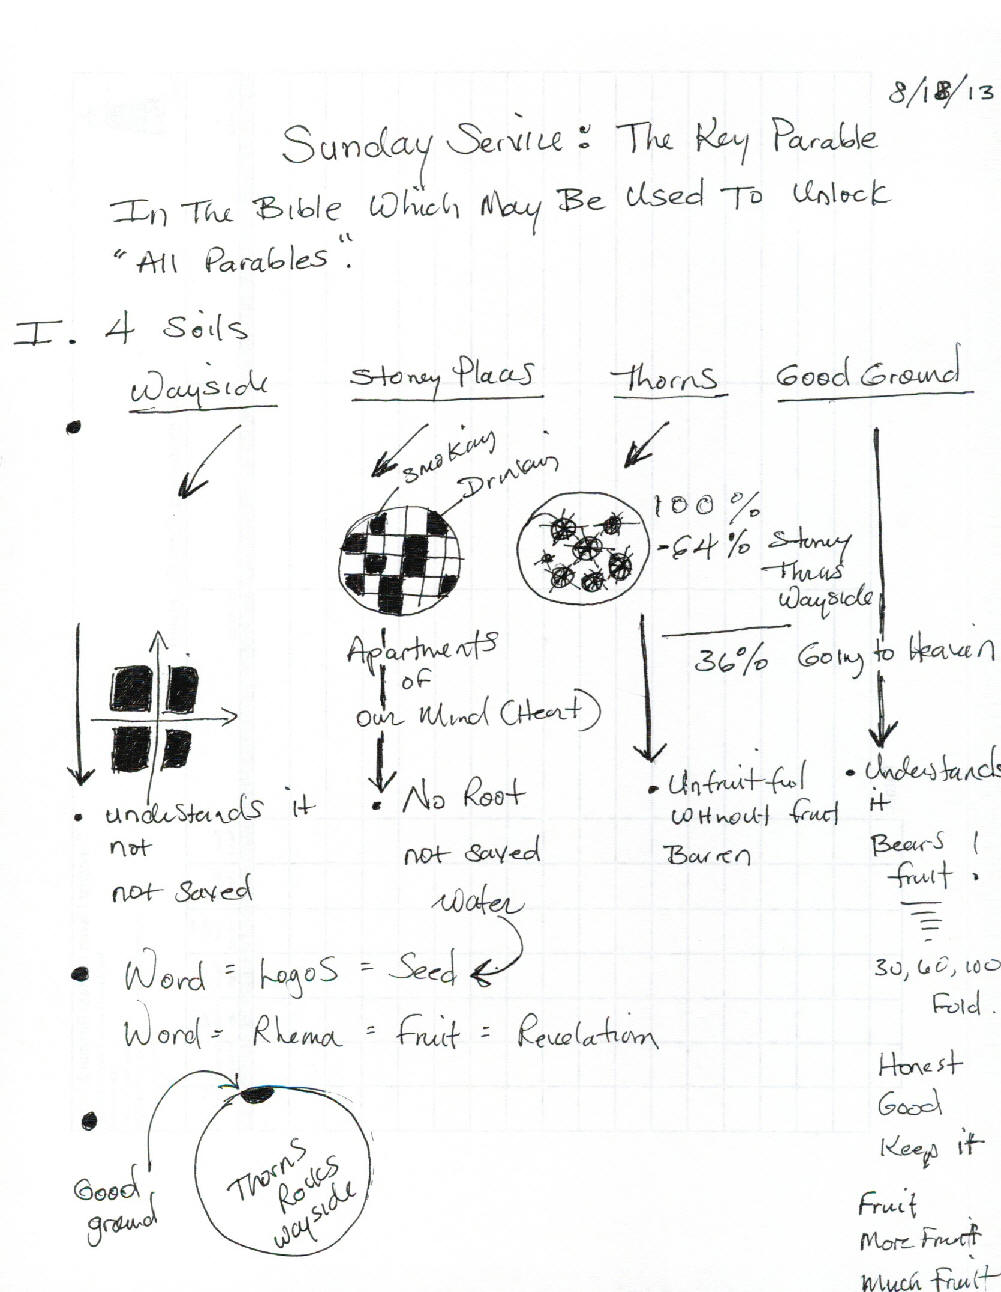 8/18/13
Sunday Service: The Key Parable
In The Bible Which May Be Used To Unlock
"All Parables".
I. 4 Soils
Wayside
Stoney Plaas
Thorns
Good Ground
Smoking
Drinking
100%
-64% Stoney
Thrus
Wayside
36% Going to Heaven
Apartments
of
our Mind (Heart)
understands it
not
not saved
No Root
not saved
Water
Unfruitful
without fruit
Barren
Understands
it
Bears
fruit!
30, 60, 100
Fold.
Word = Logos = Seed
Word = Rhema = Fruit = Revelation
Honest
Good
Keep it
Fruit
More Fruit
Much Fruit
Good
ground
Thorns
Rocks
wayside